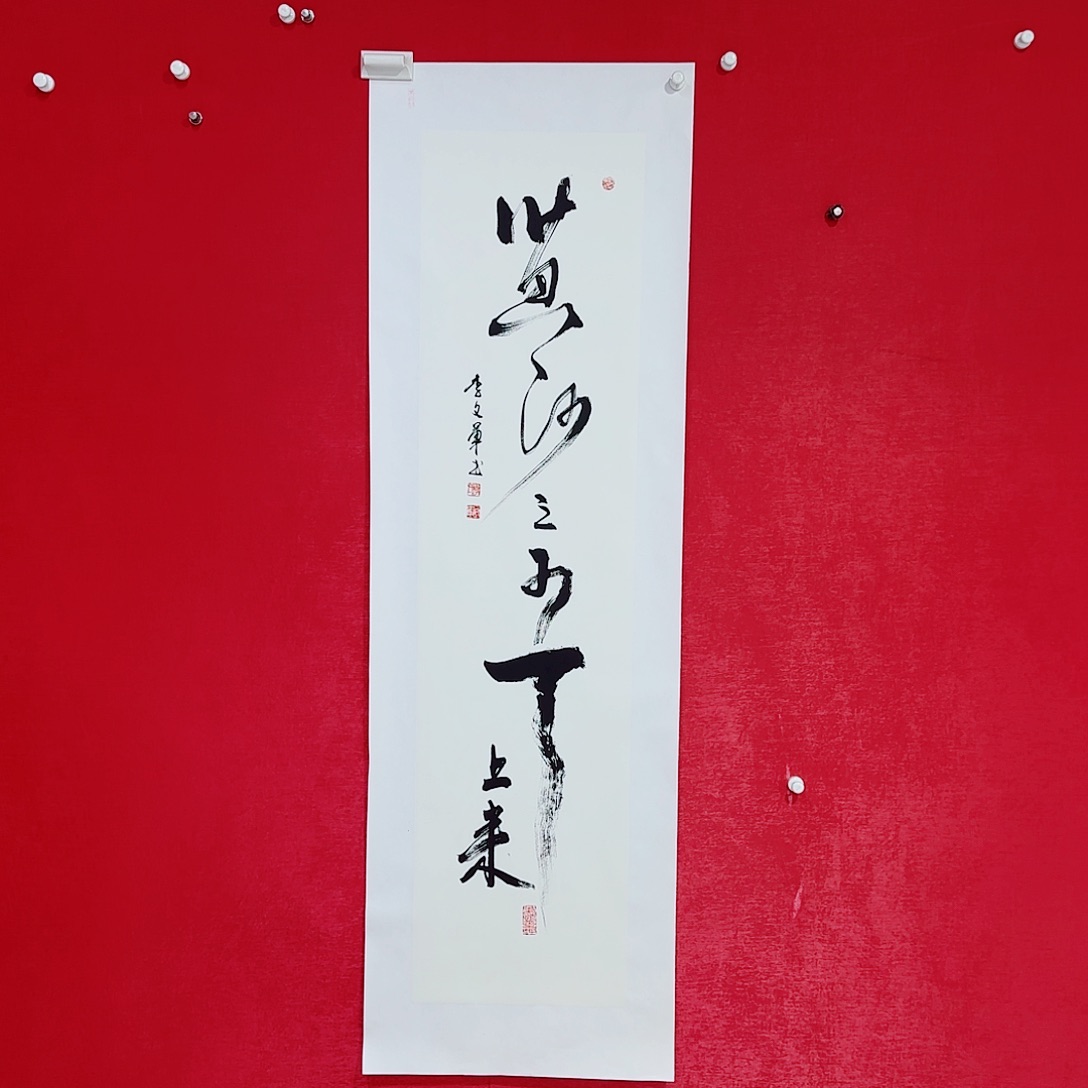 黄河之水天上来
李文軍书